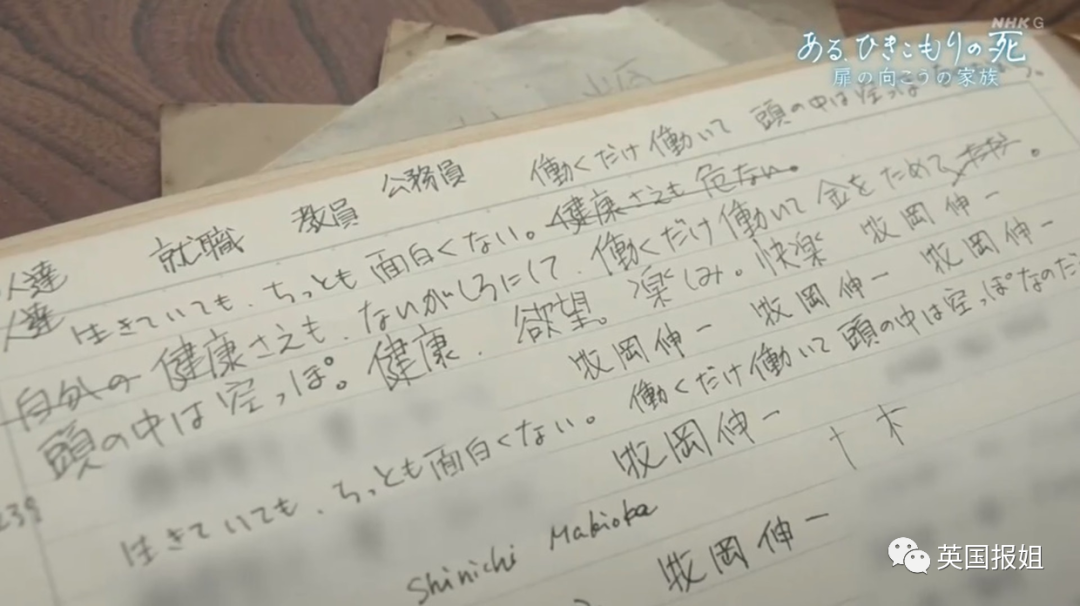 NHK G
ある、ひきこもりの死
扉の向こうの家族
人達 就職 教員 公務員 働くだけ働いて 頭の中は空っぽ
人達 生きていても、ちっとも面白くない。健康さえも危ない。
自分の健康さえも、ないがしろにして、働くだけ働いて金をためて 。
頭の中は空っぽ。健康、欲望。楽しみ。快楽 牧岡伸一
牧岡伸一 牧岡伸一 牧岡伸一
生きていても、ちっとも面白くない。働くだけ働いて頭の中は空っぽなのだ
239
牧岡伸一 十 木
Shinichi Makioka
牧岡伸一
英国报姐